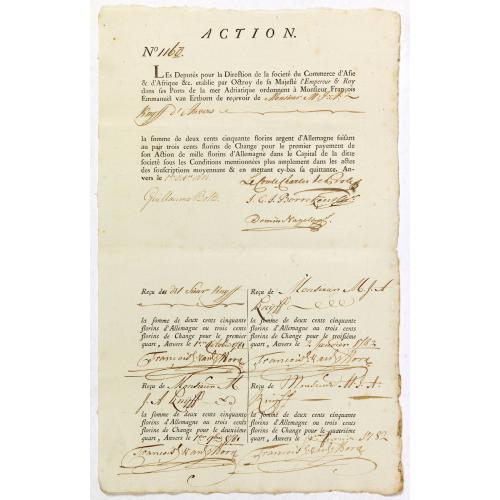 ACTION.
No 1162.
LEs Deputés pour la Direction de la societé du Commerce d'Asie
& d'Afrique &c. etablie par Octroy de sa Majesté l'Empereur & Roy
dans ses Ports de la mer Adriatique ordonnent à Monsieur François
Emmanuel van Ertborn de recevoir de Monsieur M. J. A.
Knyff d'Anvers
la somme de deux cents cinquante florins argent d'Allemagne faisant
au pair trois cents florins de Change pour le premier payement de
son Action de mille florins d'Allemagne dans le Capital de la ditte
societé sous les Conditions mentionnées plus amplement dans les actes
des souscriptions moyennant & en mettant cy-bas sa quittance, An-
vers le 1781
Le Comte Charles de Proli
Guillaume Bolts.
J. C. J. Borrekens
Domin Nagels
Reçu du dit Sieur Knyff
la somme de deux cents cinquante
florins d'Allemagne ou trois cents
florins de Change pour le premier
quart, Anvers le 1 Octobre 1781
Francois E van Ertborn
Reçu de Monsieur M. J. A.
Knyff
la somme de deux cents cinquante
florins d'Allemagne ou trois cents
florins de Change pour le troisième
quart, Anvers le 2 Janvier 1782
Francois E van Ertborn
Reçu de Monsieur M
J A Knyff
la somme de deux cents cinquante
florins d'Allemagne ou trois cents
florins de Change pour le deuxième
quart, Anvers le 1 9bre 1781
Francois E van Ertborn
Reçu de Monsieur M. J. A.
Knyff
la somme de deux cents cinquante
florins d'Allemagne ou trois cents
florins de Change pour le quatrième
quart, Anvers le 1782
Francois E van Ertborn